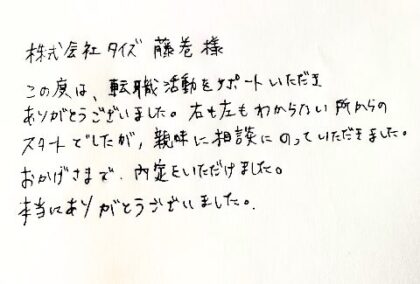 株式会社タイズ 藤巻様
この度は、転職活動をサポートいただき
ありがとうございました。右も左もわからない所からの
スタートでしたが、親味に相談にのっていただきました。
おかげさまで、内定をいただけました。
本当にありがとうございました。